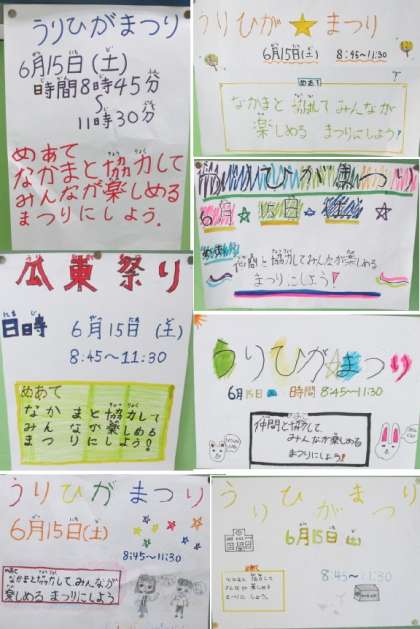 うりひがまつり
6月15日(土)
時間8時45分
~
11時30分
めあて
なかまと協力して
みんなが楽しめる
まつりにしよう.
うりひが★まつり
6月15日(土) 8:45~11:30
めあて
なかまと協力してみんなが
楽しめる まつりにしよう!
6月☆15日
仲間と協力してみんなが楽しめる
まつりにしよう!
瓜東祭り
日時 6月15日(土)
8:45~11:30
めあて
なかまと協力して
みんなが楽しめる
まつりにしよう!
うりひがまつり
6月15日 時間 8:45~11:30
仲間と協力して
みんなが楽しめる
まつりにしよう!
うりひがまつり
6月15日(土)
8:45~11:30
めあて
なかまと協力して、みんなが
楽しめる まつりにしよう
うりひがまつり
6月15日(土)
8:45~11:30
なかまと協力して
みんなが楽しめる
まつりにしよう。